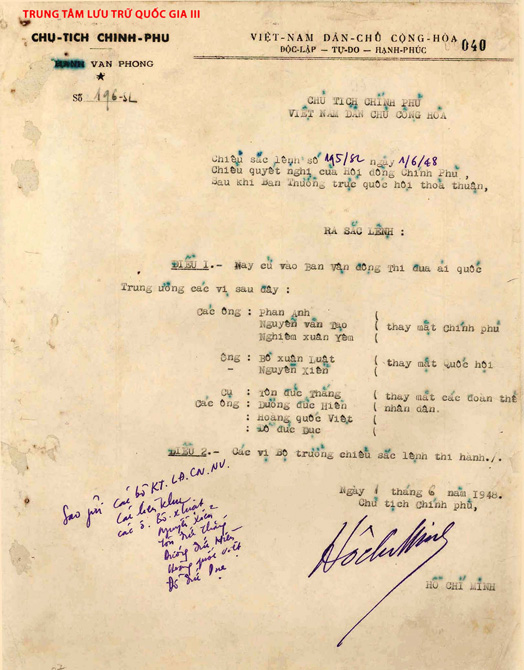 TRUNG TÂM LƯU TRỮ QUỐC GIA III
CHỦ-TỊCH CHÍNH-PHỦ
VĂN PHÒNG
Số 196-SL
VIỆT-NAM DÂN-CHỦ CỘNG-HÒA
ĐỘC-LẬP — TỰ-DO — HẠNH-PHÚC
040
CHỦ TỊCH CHÍNH PHỦ
VIỆT NAM DÂN CHỦ CỘNG HÒA
Chiếu sắc lệnh số 195/SL ngày 1/6/48
Chiếu quyết nghị của Hội đồng Chính Phủ,
Sau khi Ban Thường trực quốc hội thoả thuận,
RA SẮC LỆNH :
ĐIỀU 1.- Nay cử vào Ban vận động Thi đua ái quốc
Trung ương các vị sau đây :
Các ông : Phan Anh
Nguyễn văn Tạo ( thay mặt Chính phủ
Nghiêm xuân Yêm
Ông : Bồ xuân Luật ( thay mặt Quốc hội
- Nguyễn Xiển
Cụ : Tôn đức Thắng ( thay mặt các đoàn thể
Các ông : Dương đức Hiền ( nhân dân.
: Hoàng quốc Việt (
: Đỗ đức Dục (
ĐIỀU 2.- Các vị Bộ trưởng chiếu sắc lệnh thi hành./.
Ngày 1 tháng 6 năm 1948.
Chủ tịch Chính phủ,
Sao gửi các bộ KT. LĐ. CN. NV.
các liên khu
các ô. Bồ x. Luật
Nguyễn Xiển
Tôn Đức Thắng
Dương Đức Hiền
Hoàng quốc Việt
Đỗ Đức Dục
Hồ Chí Minh
HỒ CHÍ MINH